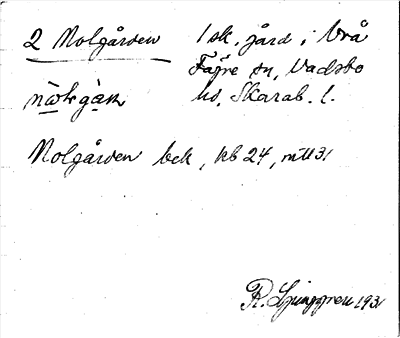 2 Nolgården 1 sk. gård i Vrå
Fägre sn, Vadsbo
hd. Skarab. l.
Nolgården bek, kb 24, mtl 3/
R. Ljunggren 1931